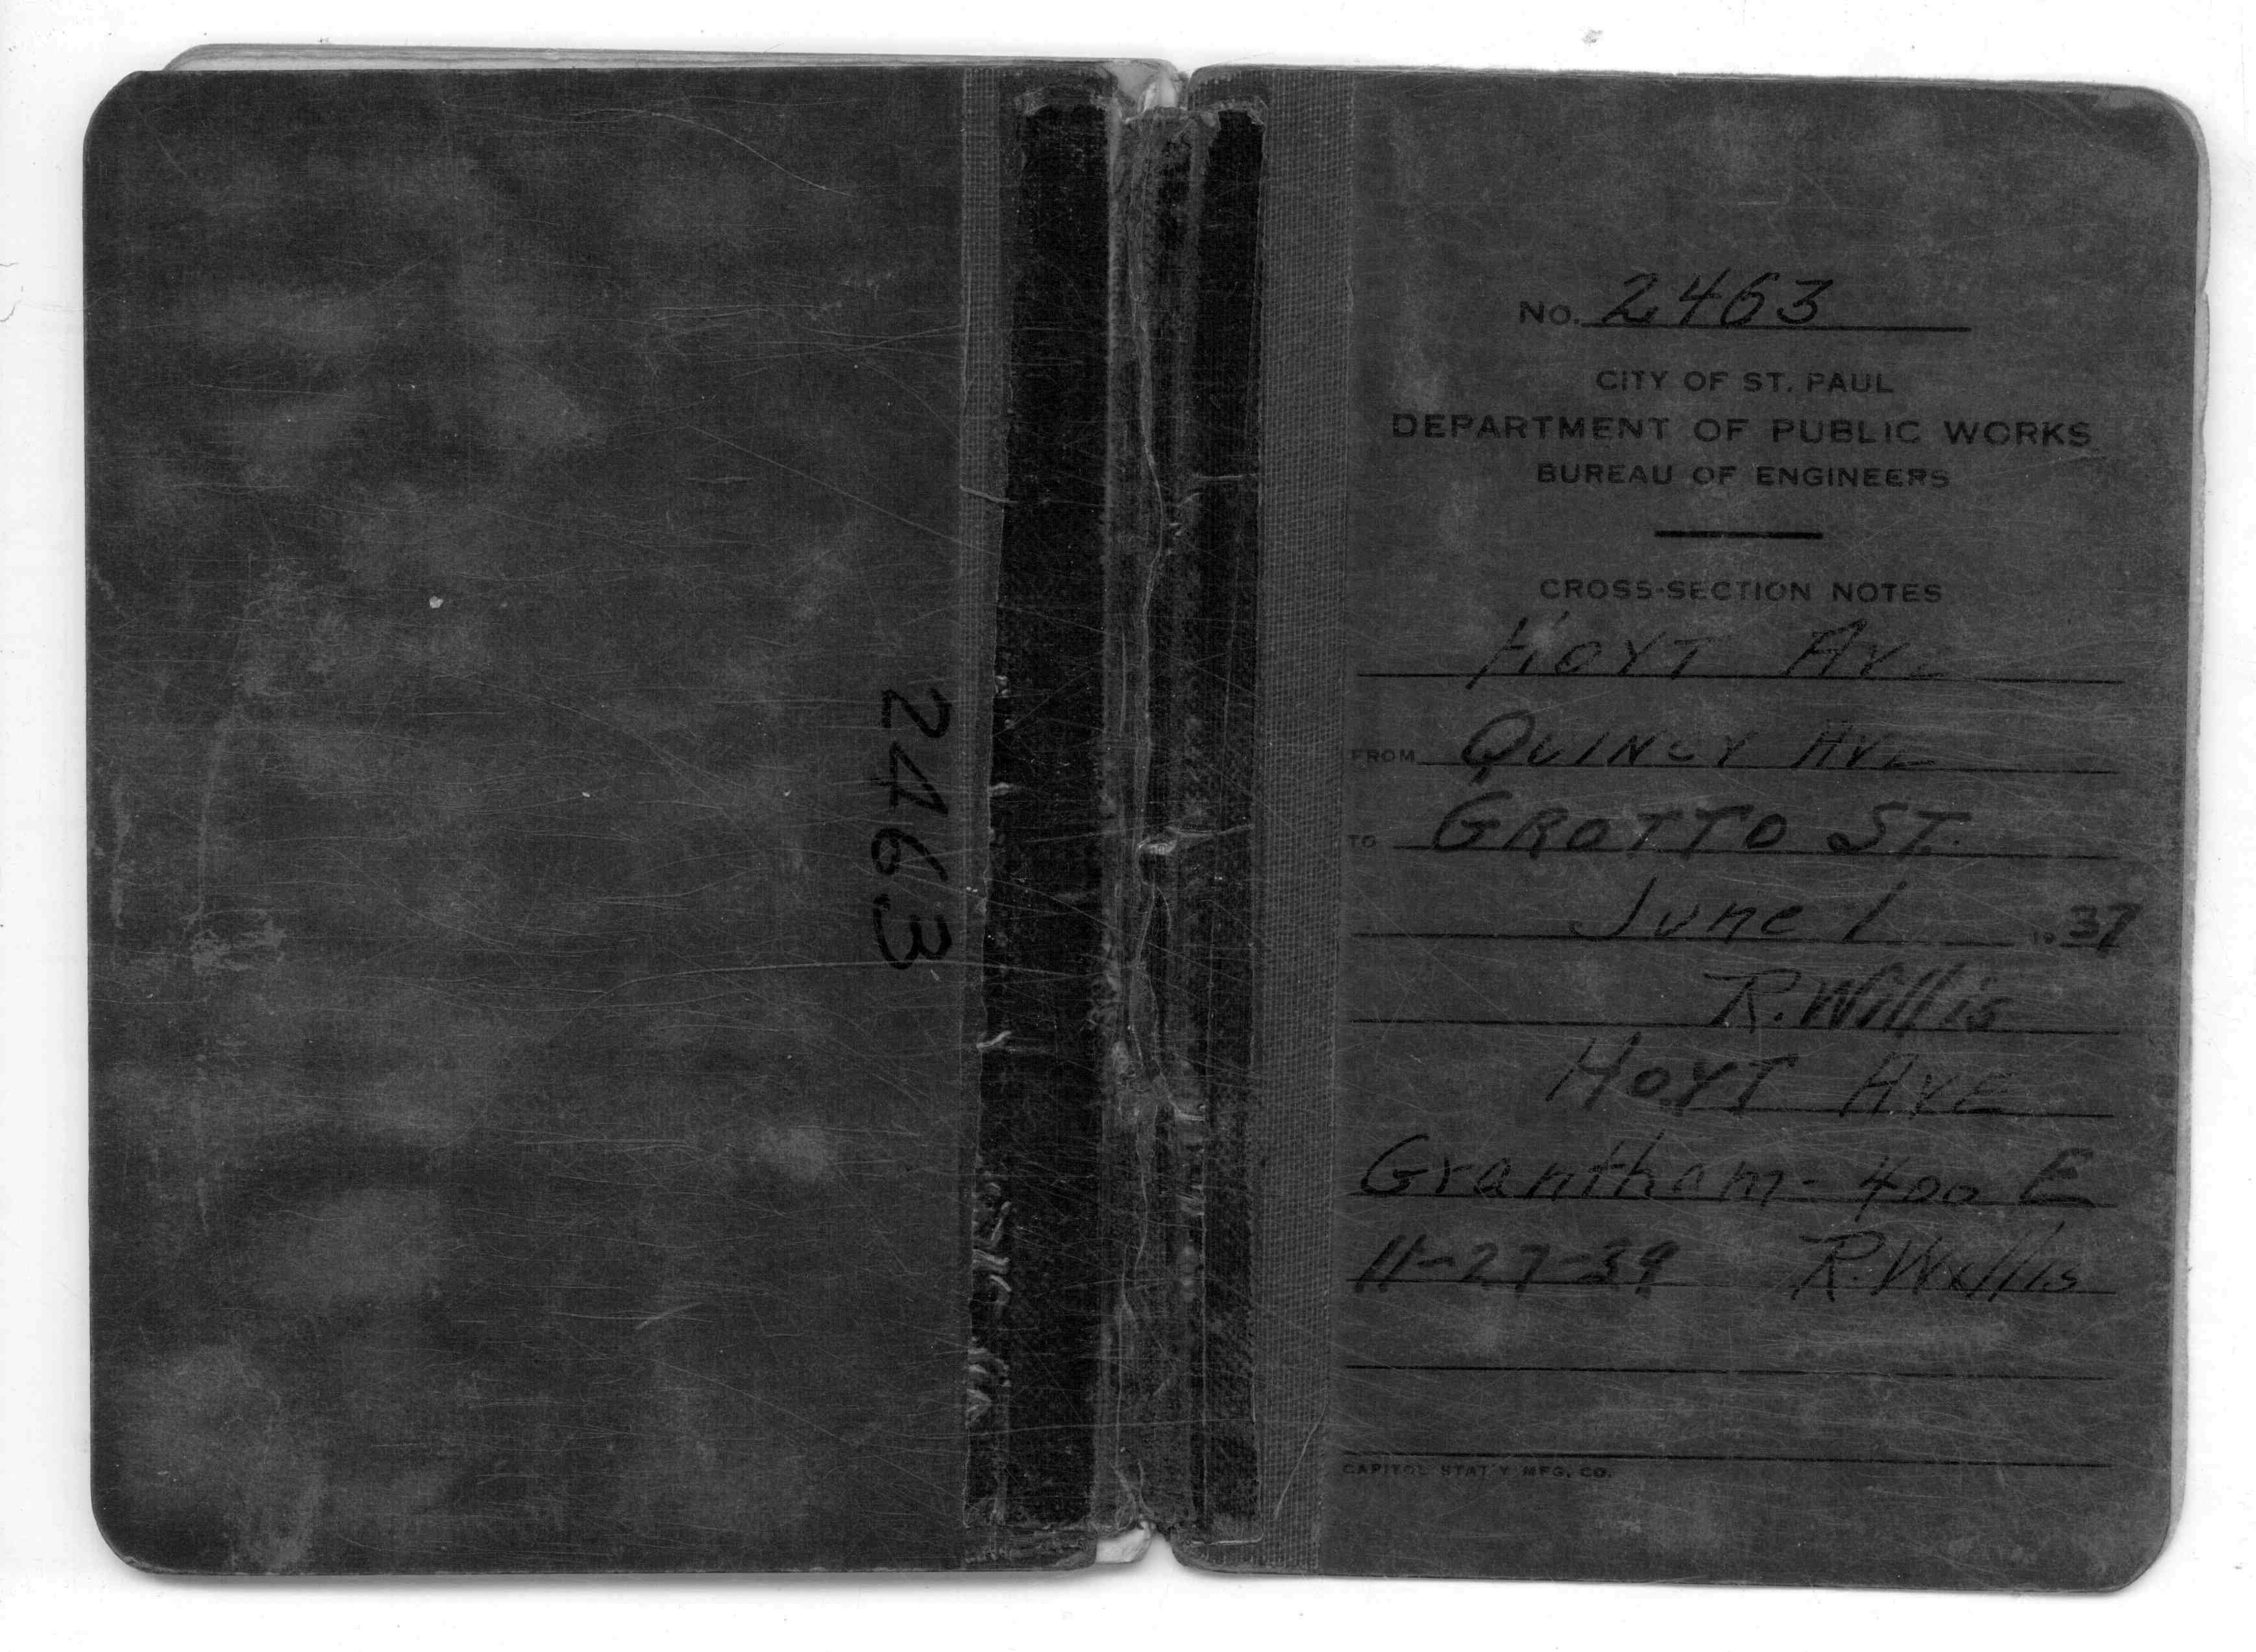 2463
No. 2463
CITY OF ST. PAUL
DEPARTMENT OF PUBLIC WORKS
BUREAU OF ENGINEERS
CROSS-SECTION NOTES
HOYT AVE
FROM QUINCY AVE
TO GROTTO ST.
June 1 1937
R. Willis
HOYT AVE
Grantham - 400 E
11-27-39 R. Willis
CAPITOL STAT'Y MFG. CO.